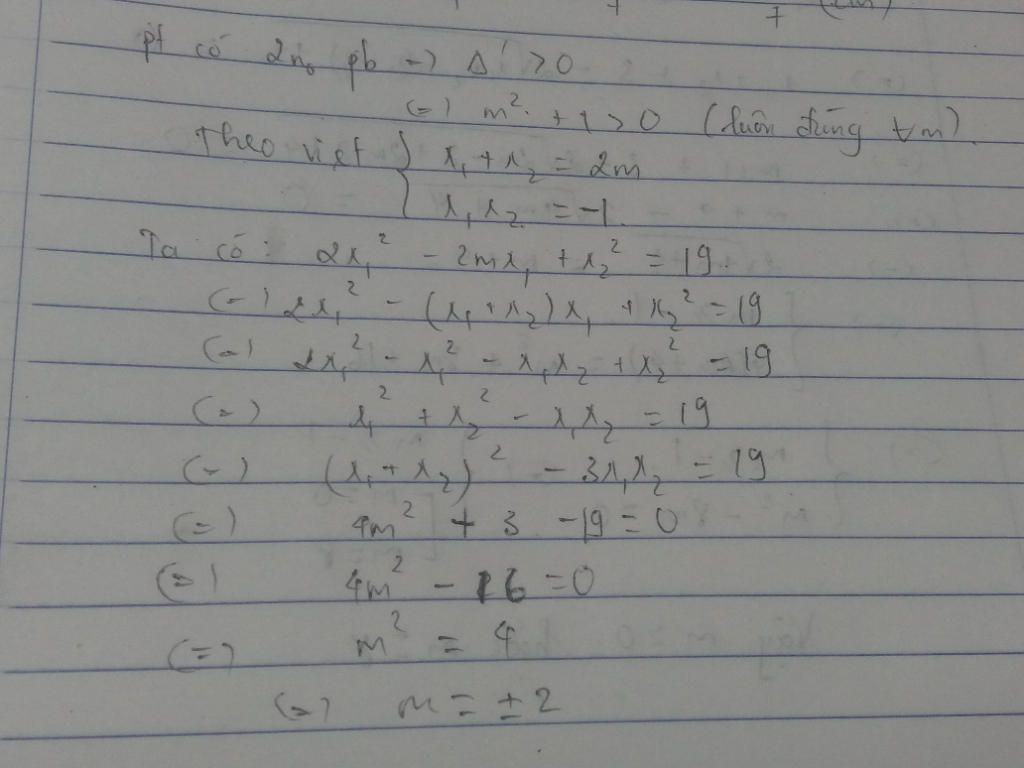 7 7 (tm)
pt có 2n₀ pb => Δ' > 0
(=) m² + 1 > 0 (luôn đúng ∀m)
Theo viet { x₁ + x₂ = 2m
x₁x₂ = -1.
Ta có: 2x₁² - 2mx₁ + x₂² = 19.
(=) 2x₁² - (x₁ + x₂)x₁ + x₂² = 19
(=) 2x₁² - x₁² - x₁x₂ + x₂² = 19
(=) x₁² + x₂² - x₁x₂ = 19
(=) (x₁ + x₂)² - 3x₁x₂ = 19
(=) 4m² + 3 - 19 = 0
(=) 4m² - 16 = 0
(=) m² = 4
(=) m = ±2